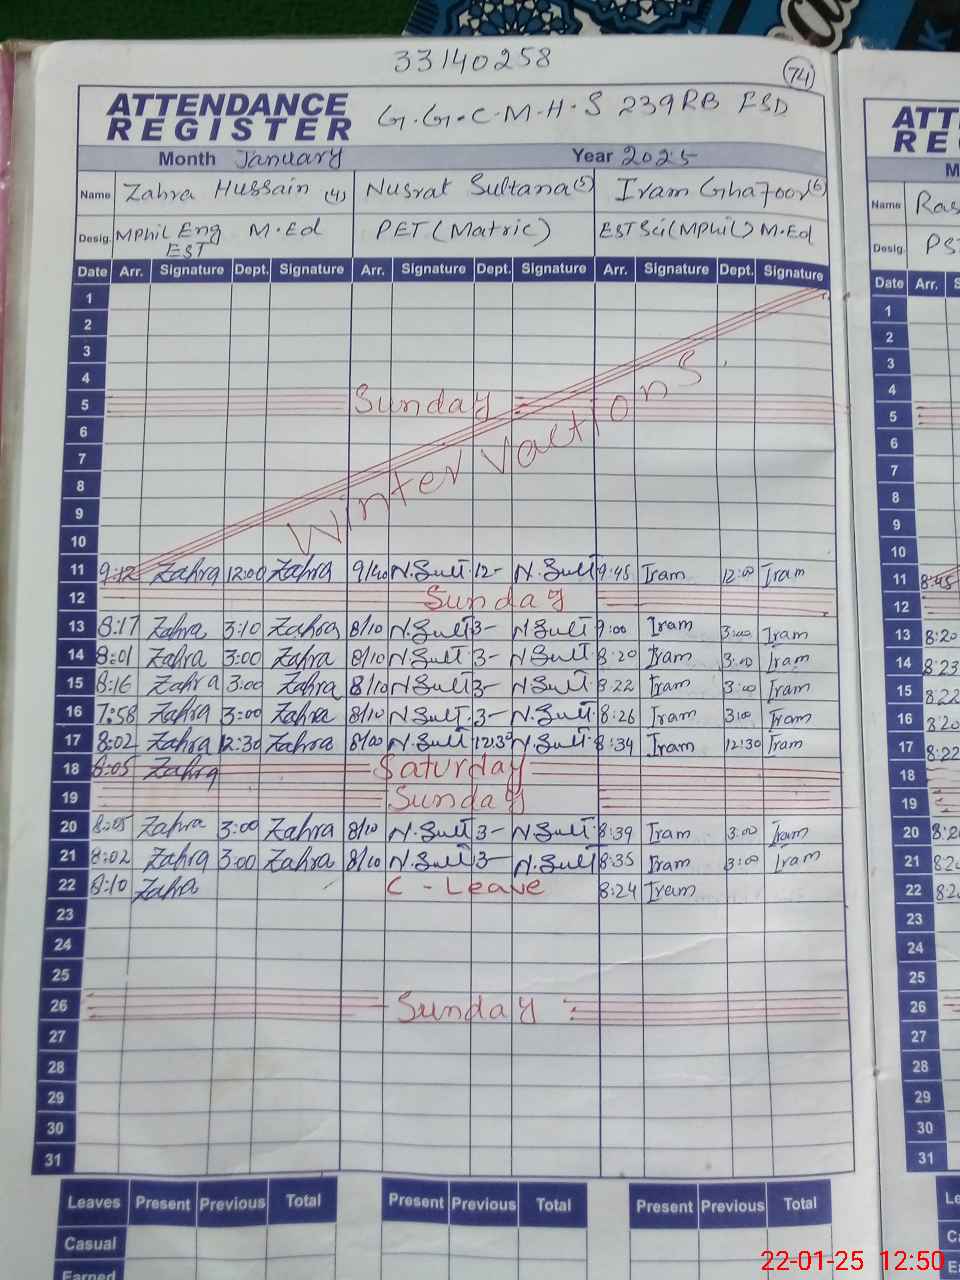 33140258
74
ATTENDANCE REGISTER G.G.C.M.H.S 239RB FSD
Month January Year 2025
Name Zahra Hussain (4) Nusrat Sultana (5) Iram Ghafoor (6)
Desig. MPhil Eng EST M.Ed PET (Matric) EST Sci (MPhil) M.Ed
Date Arr. Signature Dept. Signature Arr. Signature Dept. Signature Arr. Signature Dept. Signature
1
2
3
4
5 Sunday
6
7
8
9
10
Winter Vactions
11 9:12 Zahra 12:00 Zahra 9/40 N.Sult 12- N.Sult 9:45 Iram 12:00 Iram
12 Sunday
13 8:17 Zahra 3:10 Zahra 8/10 N.Sult 3- N.Sult 9:00 Iram 3:00 Iram
14 8:01 Zahra 3:00 Zahra 8/10 N.Sult 3- N.Sult 8:20 Iram 3:00 Iram
15 8:16 Zahra 3:00 Zahra 8/10 N.Sult 3- N.Sult 8:22 Iram 3:00 Iram
16 7:58 Zahra 3:00 Zahra 8/10 N.Sult 3- N.Sult 8:26 Iram 3:00 Iram
17 8:02 Zahra 12:30 Zahra 8/00 N.Sult 12:30 N.Sult 8:34 Iram 12:30 Iram
18 8:05 Zahra Saturday
19 Sunday
20 8:05 Zahra 3:00 Zahra 8/10 N.Sult 3- N.Sult 8:39 Iram 3:00 Iram
21 8:02 Zahra 3:00 Zahra 8/10 N.Sult 3- N.Sult 8:35 Iram 3:00 Iram
22 8:10 Zahra C - Leave 8:24 Iram
23
24
25
26 Sunday
27
28
29
30
31
Leaves Present Previous Total Present Previous Total Present Previous Total
Casual
Earned
Name
Desig.
Date Arr.
1
2
3
4
5
6
7
8
9
10
11 8:45
12
13 8:20
14 8:23
15 822
16
17 8:22
18
19
20
21
22
23
24
25
26
27
28
29
30
31
22-01-25 12:50